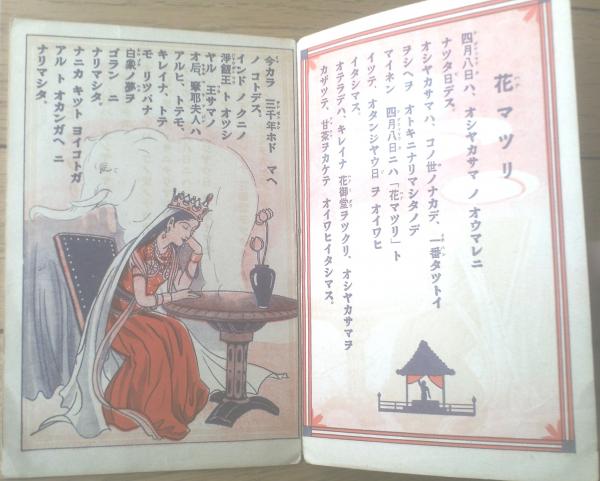 花マツリ
四月八日ハ、オシヤカサマ ノ オウマレニ
ナツタ日デス。
オシヤカサマハ、コノ世ノナカデ、一番タツトイ
ヲシヘヲ オトキニナリマシタノデ
マイネン 四月八日ニハ「花マツリ」ト
イツテ、オタンジヤウ日 ヲ オイワヒ
イタシマス。
オテラデハ、キレイナ 花御堂ヲツクリ、オシヤカサマヲ
カザツテ、甘茶ヲカケテ オイワヒイタシマス。
今カラ 三千年ホド マヘ
ノ コトデス。
インド ノ クニノ
淨飯王 ト オツシ
ヤル 王サマノ
オ后、摩耶夫人ハ
アルヒ、トテモ、
キレイナ、トテ
モ リツパナ
白象ノ夢ヲ
ゴラン ニ
ナリマシタ。
ナニカ キツト ヨイコトガ
アル ト オカンガヘ ニ
ナリマシタ。